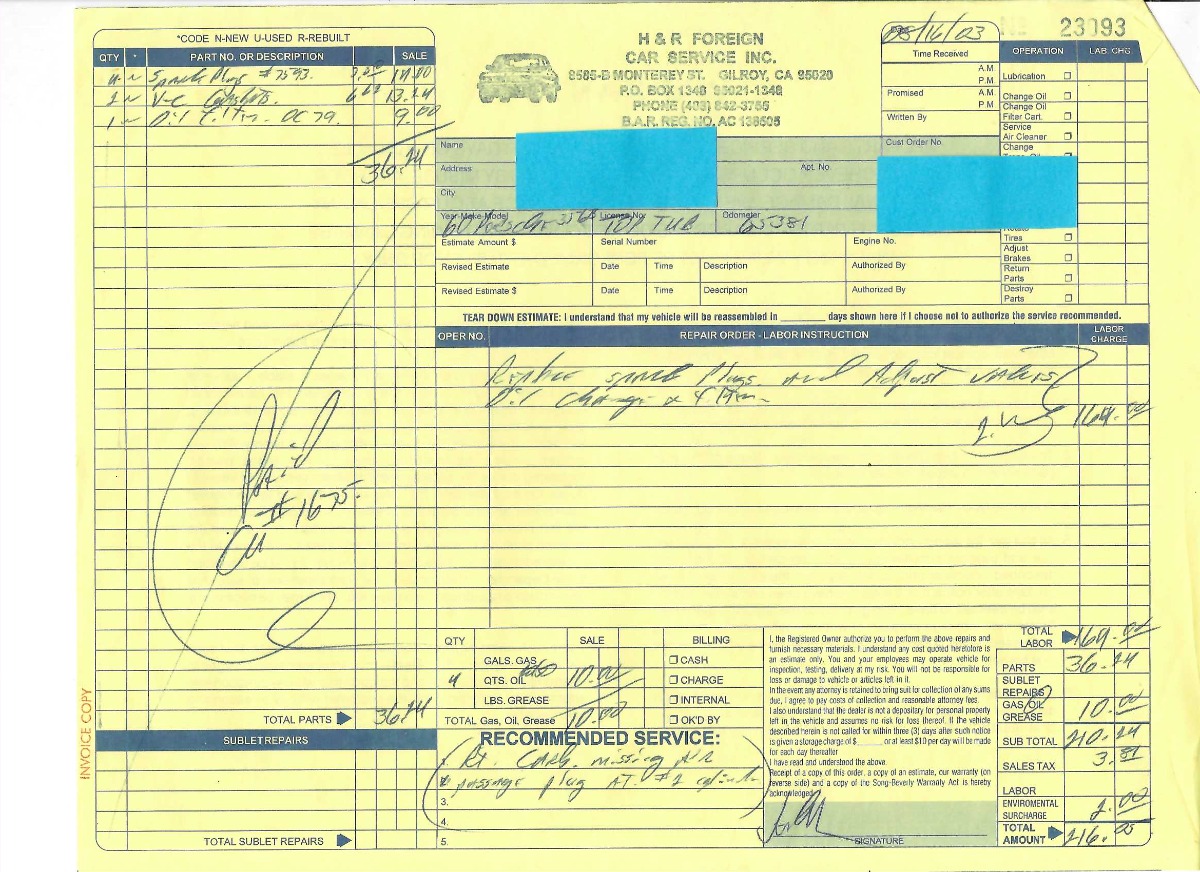 *CODE N-NEW U-USED R-REBUILT
QTY * PART NO. OR DESCRIPTION SALE
4 N Spark Plugs # 7593. 3.50 14.00
2 N V-C Gaskets. 6.62 13.24
1 N Oil Filter. OC 79. 9.00
36.24
Paid
# 1675.
TOTAL PARTS 36.24
SUBLET REPAIRS
TOTAL SUBLET REPAIRS
INVOICE COPY
H & R FOREIGN
CAR SERVICE INC.
8585-B MONTEREY ST. GILROY, CA 95020
P.O. BOX 1348 95021-1348
PHONE (408) 842-3755
B.A.R. REG. NO. AC 138505
08/16/03
No 23093
Time Received
A.M.
P.M.
Promised A.M.
P.M.
Written By
Cust Order No.
OPERATION LAB. CHG.
Lubrication
Change Oil
Change Oil
Filter Cart.
Service
Air Cleaner
Change
Tires
Adjust
Brakes
Return
Parts
Destroy
Parts
Name
Address Apt. No.
City
Year-Make-Model License No. Odometer
60 Porsche 356B TOP TUB 65381
Estimate Amount $ Serial Number Engine No.
Revised Estimate Date Time Description Authorized By
Revised Estimate $ Date Time Description Authorized By
TEAR DOWN ESTIMATE: I understand that my vehicle will be reassembled in ________ days shown here if I choose not to authorize the service recommended.
OPER NO. REPAIR ORDER - LABOR INSTRUCTION LABOR CHARGE
Replace spark Plugs. and Adjust valves
Oil change & Filter
QTY SALE BILLING
GALS. GAS CASH
4 QTS. OIL 10.00 CHARGE
LBS. GREASE INTERNAL
TOTAL Gas, Oil, Grease 10.00 OK'D BY
RECOMMENDED SERVICE:
1. Rt. Carb. missing Air
2. passage plug AT. #2 cylinder
3.
4.
5.
I, the Registered Owner authorize you to perform the above repairs and
furnish necessary materials. I understand any cost quoted heretofore is
an estimate only. You and your employees may operate vehicle for
inspection, testing, delivery at my risk. You will not be responsible for
loss or damage to vehicle or articles left in it.
In the event any attorney is retained to bring suit for collection of any sums
due, I agree to pay costs of collection and reasonable attorney fees.
I also understand that the dealer is not a depositary for personal property
left in the vehicle and assumes no risk for loss thereof. If the vehicle
described herein is not called for within three (3) days after such notice
is given a storage charge of $______ or at least $10 per day will be made
for each day thereafter
I have read and understood the above.
Receipt of a copy of this order, a copy of an estimate, our warranty (on
reverse side) and a copy of the Song-Beverly Warranty Act is hereby
acknowledged.
SIGNATURE
TOTAL LABOR
PARTS 36.24
SUBLET REPAIRS
GAS OIL GREASE 10.00
SUB TOTAL 210.24
SALES TAX 3.81
LABOR
ENVIROMENTAL SURCHARGE 2.00
TOTAL AMOUNT 216.05